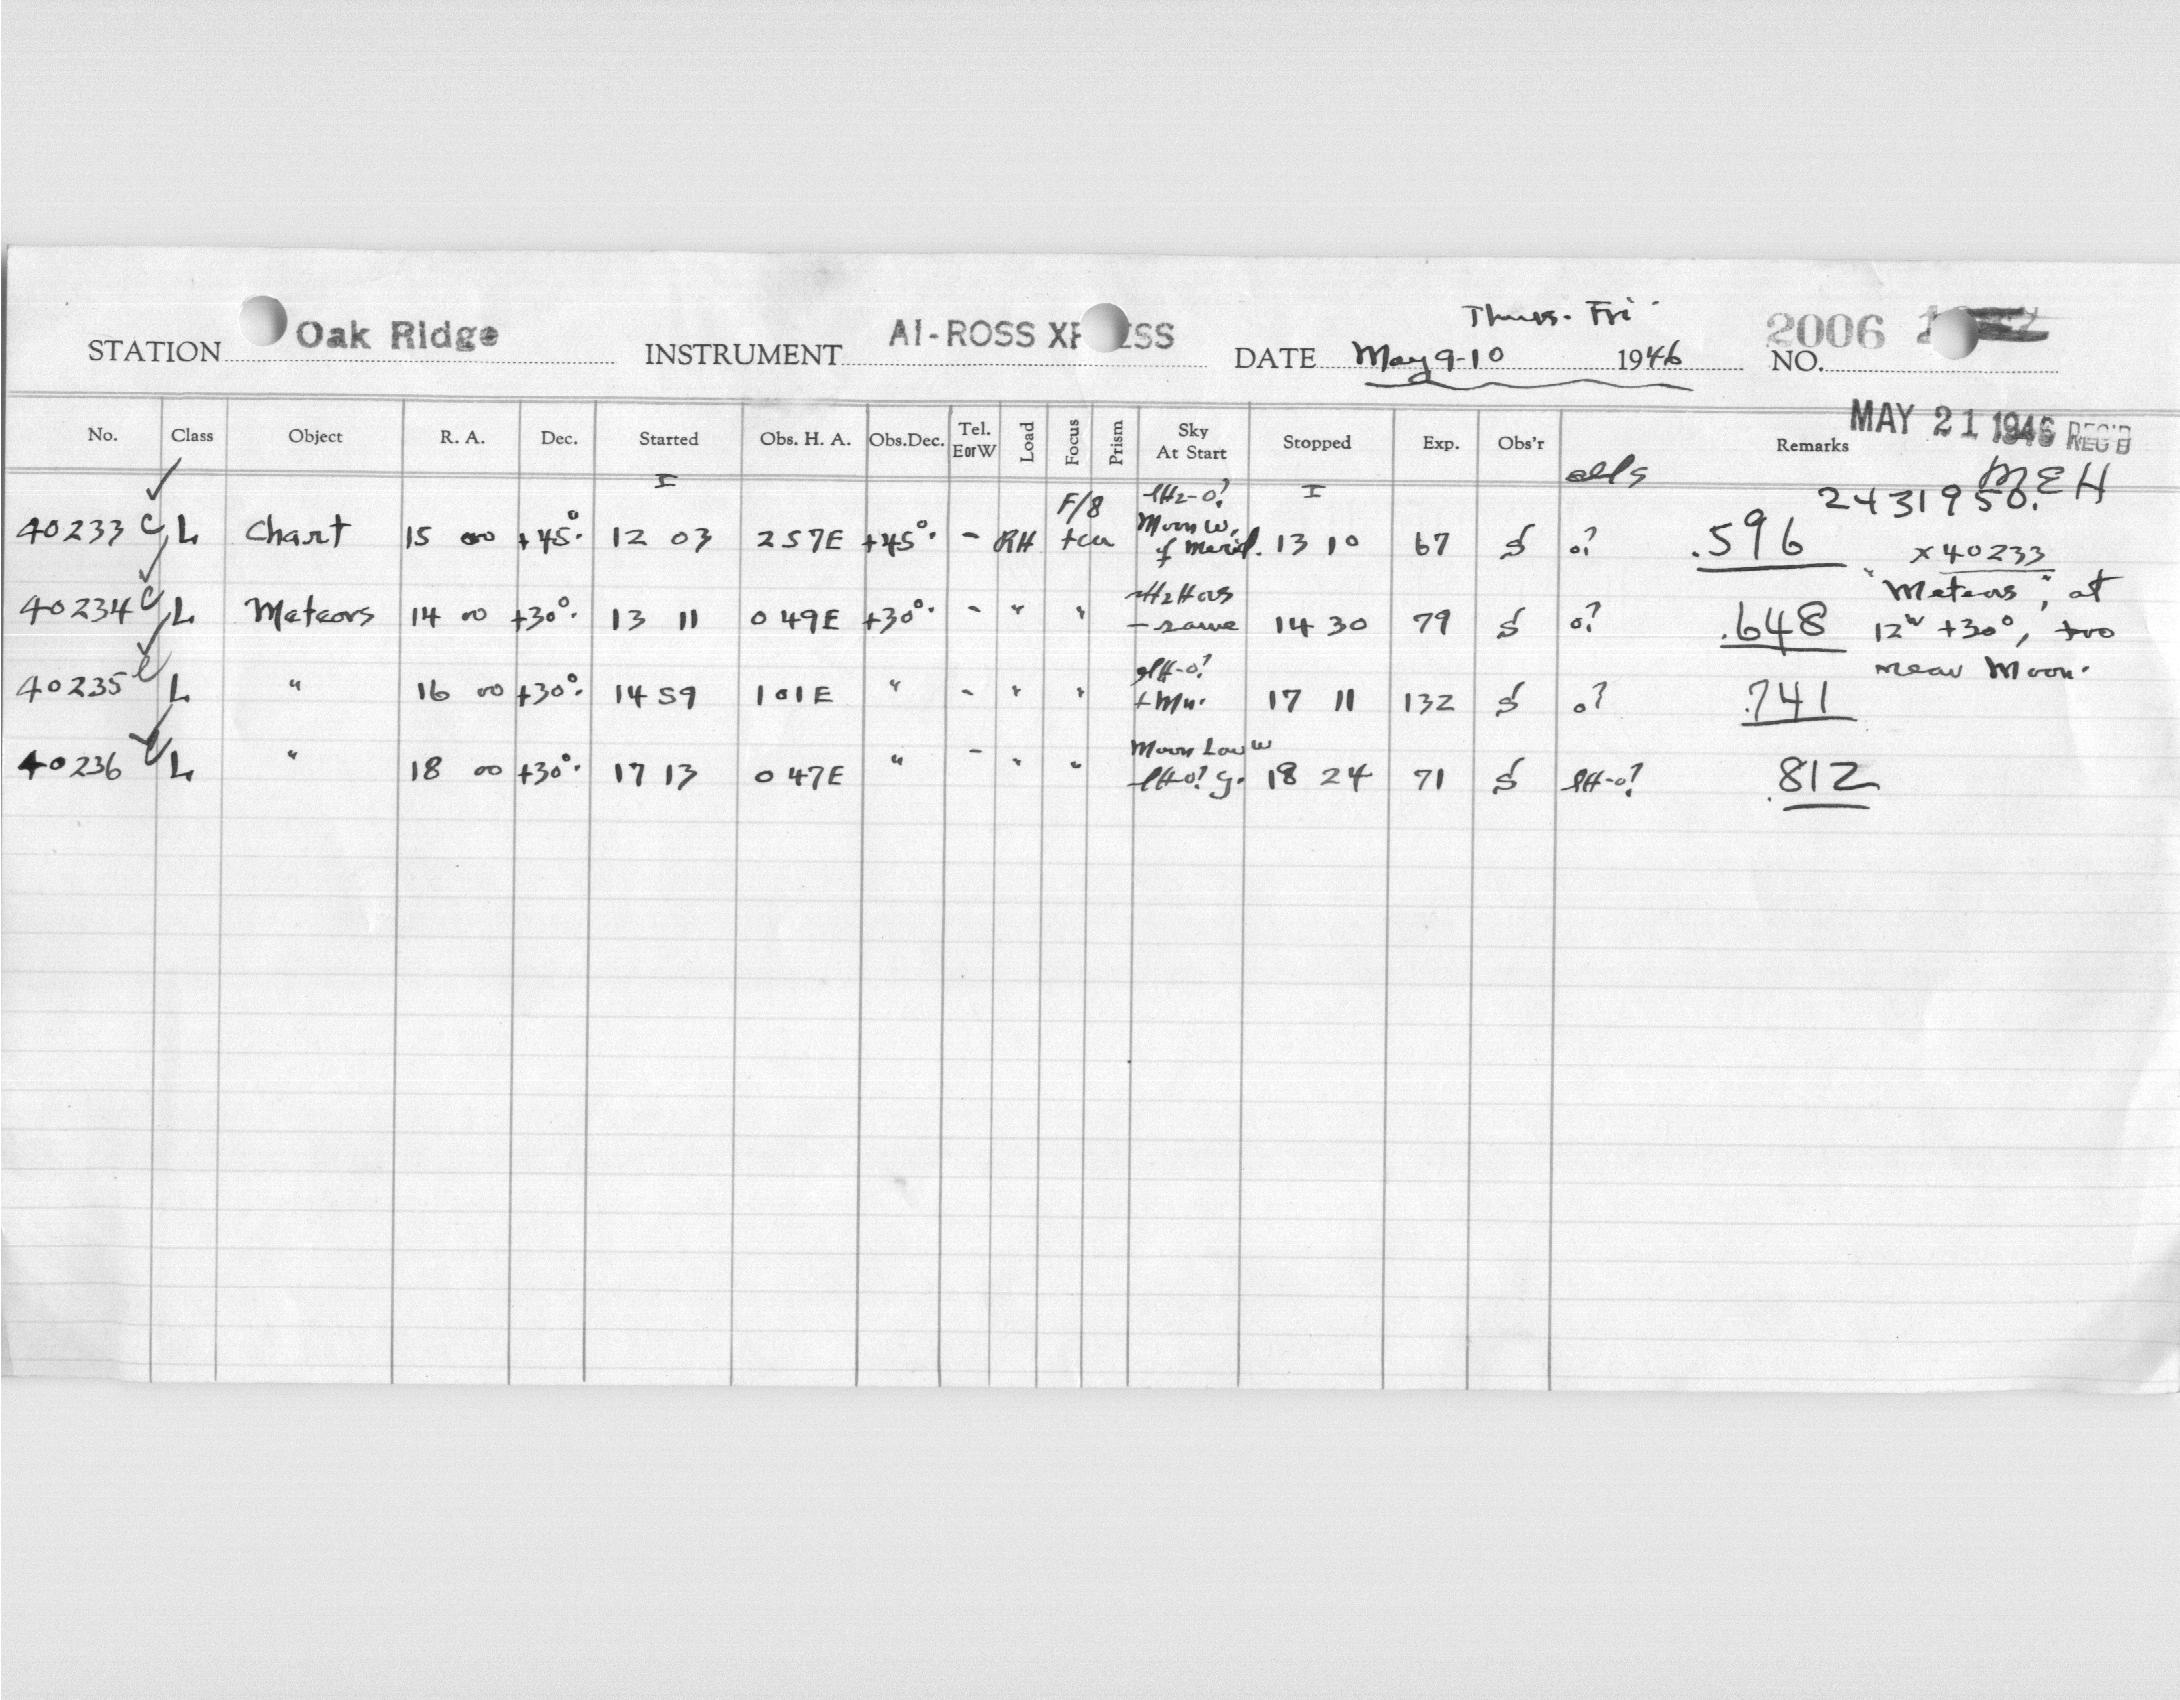 Thurs. Fri.
STATION Oak Ridge INSTRUMENT AI-ROSS XP ESS DATE May 9-10 1946 NO. 2006
MAY 21 1946 REC'D
No. Class Object R. A. Dec. Started Obs. H. A. Obs.Dec. Tel. E or W Load Focus Prism Sky At Start Stopped Exp. Obs'r Remarks
I I MEH
2431950.
40233 C L Chart 15 00 +45°. 12 03 2 57E +45°. - RH F/8 Moon W. of Merid. 13 10 67 S o? .596 x 40233
40234 C L Meteors 14 00 +30°. 13 11 0 49E +30°. - " " - same 14 30 79 S o? .648 "Meteors", at 12 +30°, too near Moon.
40235 C L " 16 00 +30°. 14 59 1 01E " - " " 17 11 132 S o? .741
40236 C L " 18 00 +30°. 17 13 0 47E " - " " Moon Low W 18 24 71 S lH-o? .812